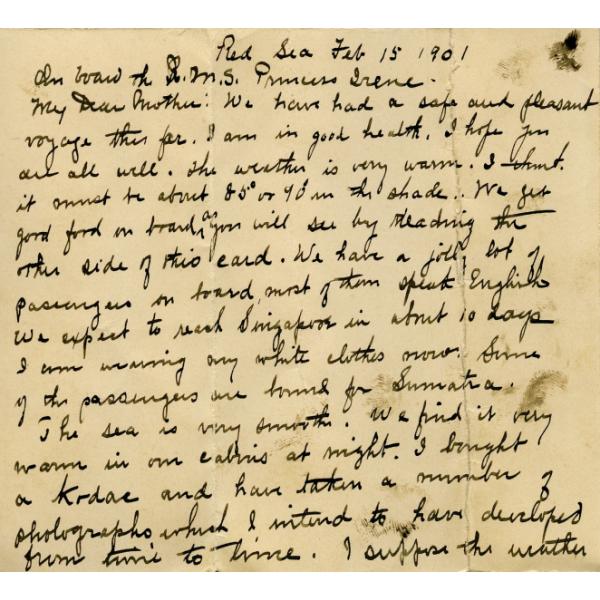 Red Sea Feb 15 1901
On board the R.M.S. Princess Irene.
My Dear Mother: We have had a safe and pleasant
voyage thus far. I am in good health. I hope you
are all well. The weather is very warm. I think
it must be about 85° or 90° in the shade. We get
good food on board, as you will see by reading the
other side of this card. We have a jolly lot of
passengers on board, most of them speak English
We expect to reach Singapoor in about 10 days
I am wearing my white clothes now. Some
of the passengers are bound for Sumatra.
The sea is very smooth. We find it very
warm in our cabins at night. I bought
a Kodac and have taken a number of
photographs which I intend to have developed
from time to time. I suppose the weather